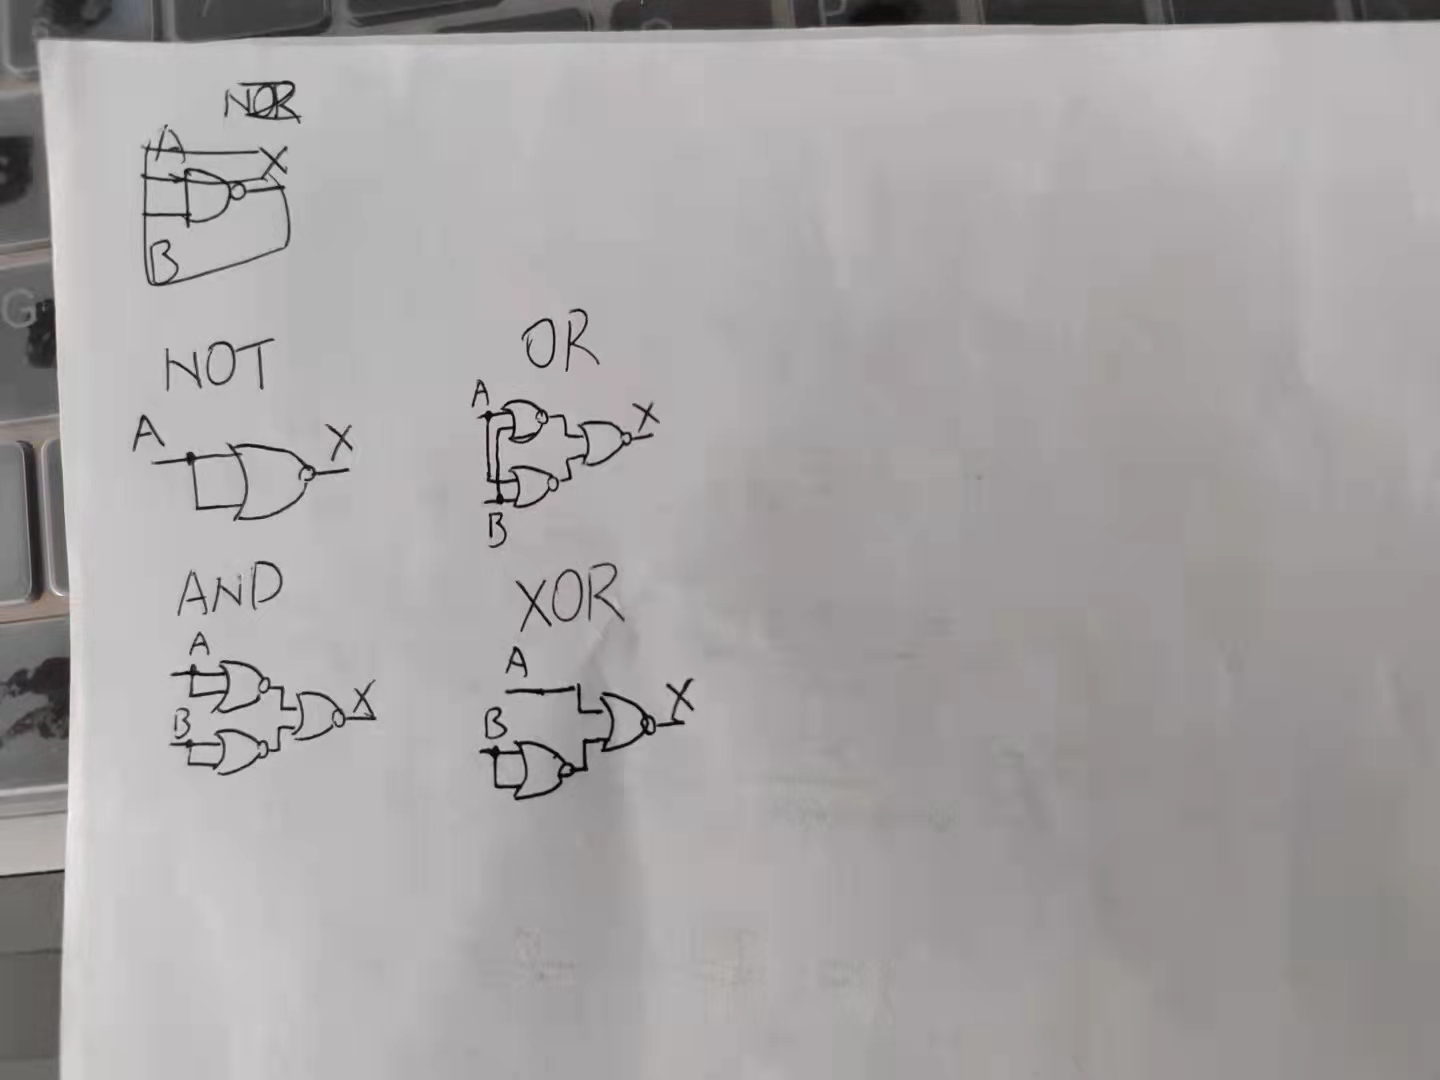 NOR
A
X
B
NOT
A
X
OR
A
X
B
AND
A
B
X
XOR
A
B
X
G